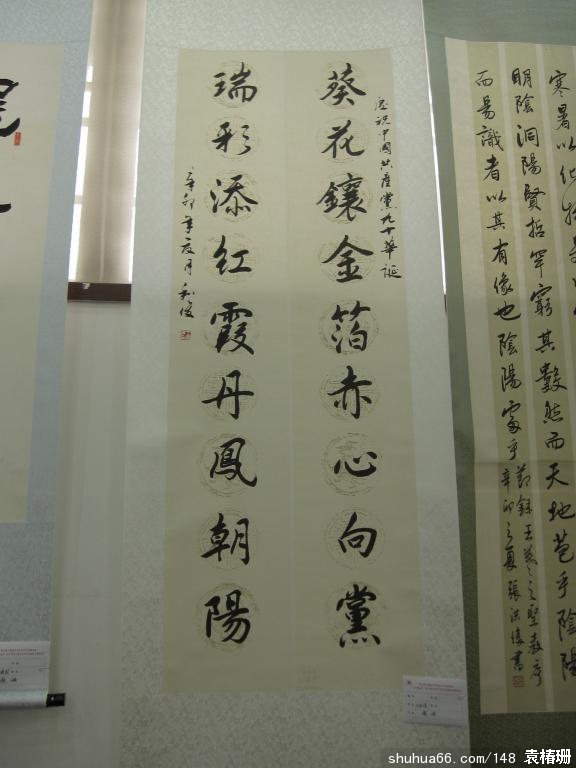 慶祝中國共產黨九十華誕
葵花鑲金箔赤心向黨
瑞彩添紅霞丹鳳朝陽
辛卯年夏月
寒暑以化
明陰洞陽賢哲罕窮其數然而天地苞乎陰陽
而易識者以其有像也陰陽處乎
節錄王羲之聖教序
辛卯之夏張洪
書
shuhua66.com/148 袁椿珊